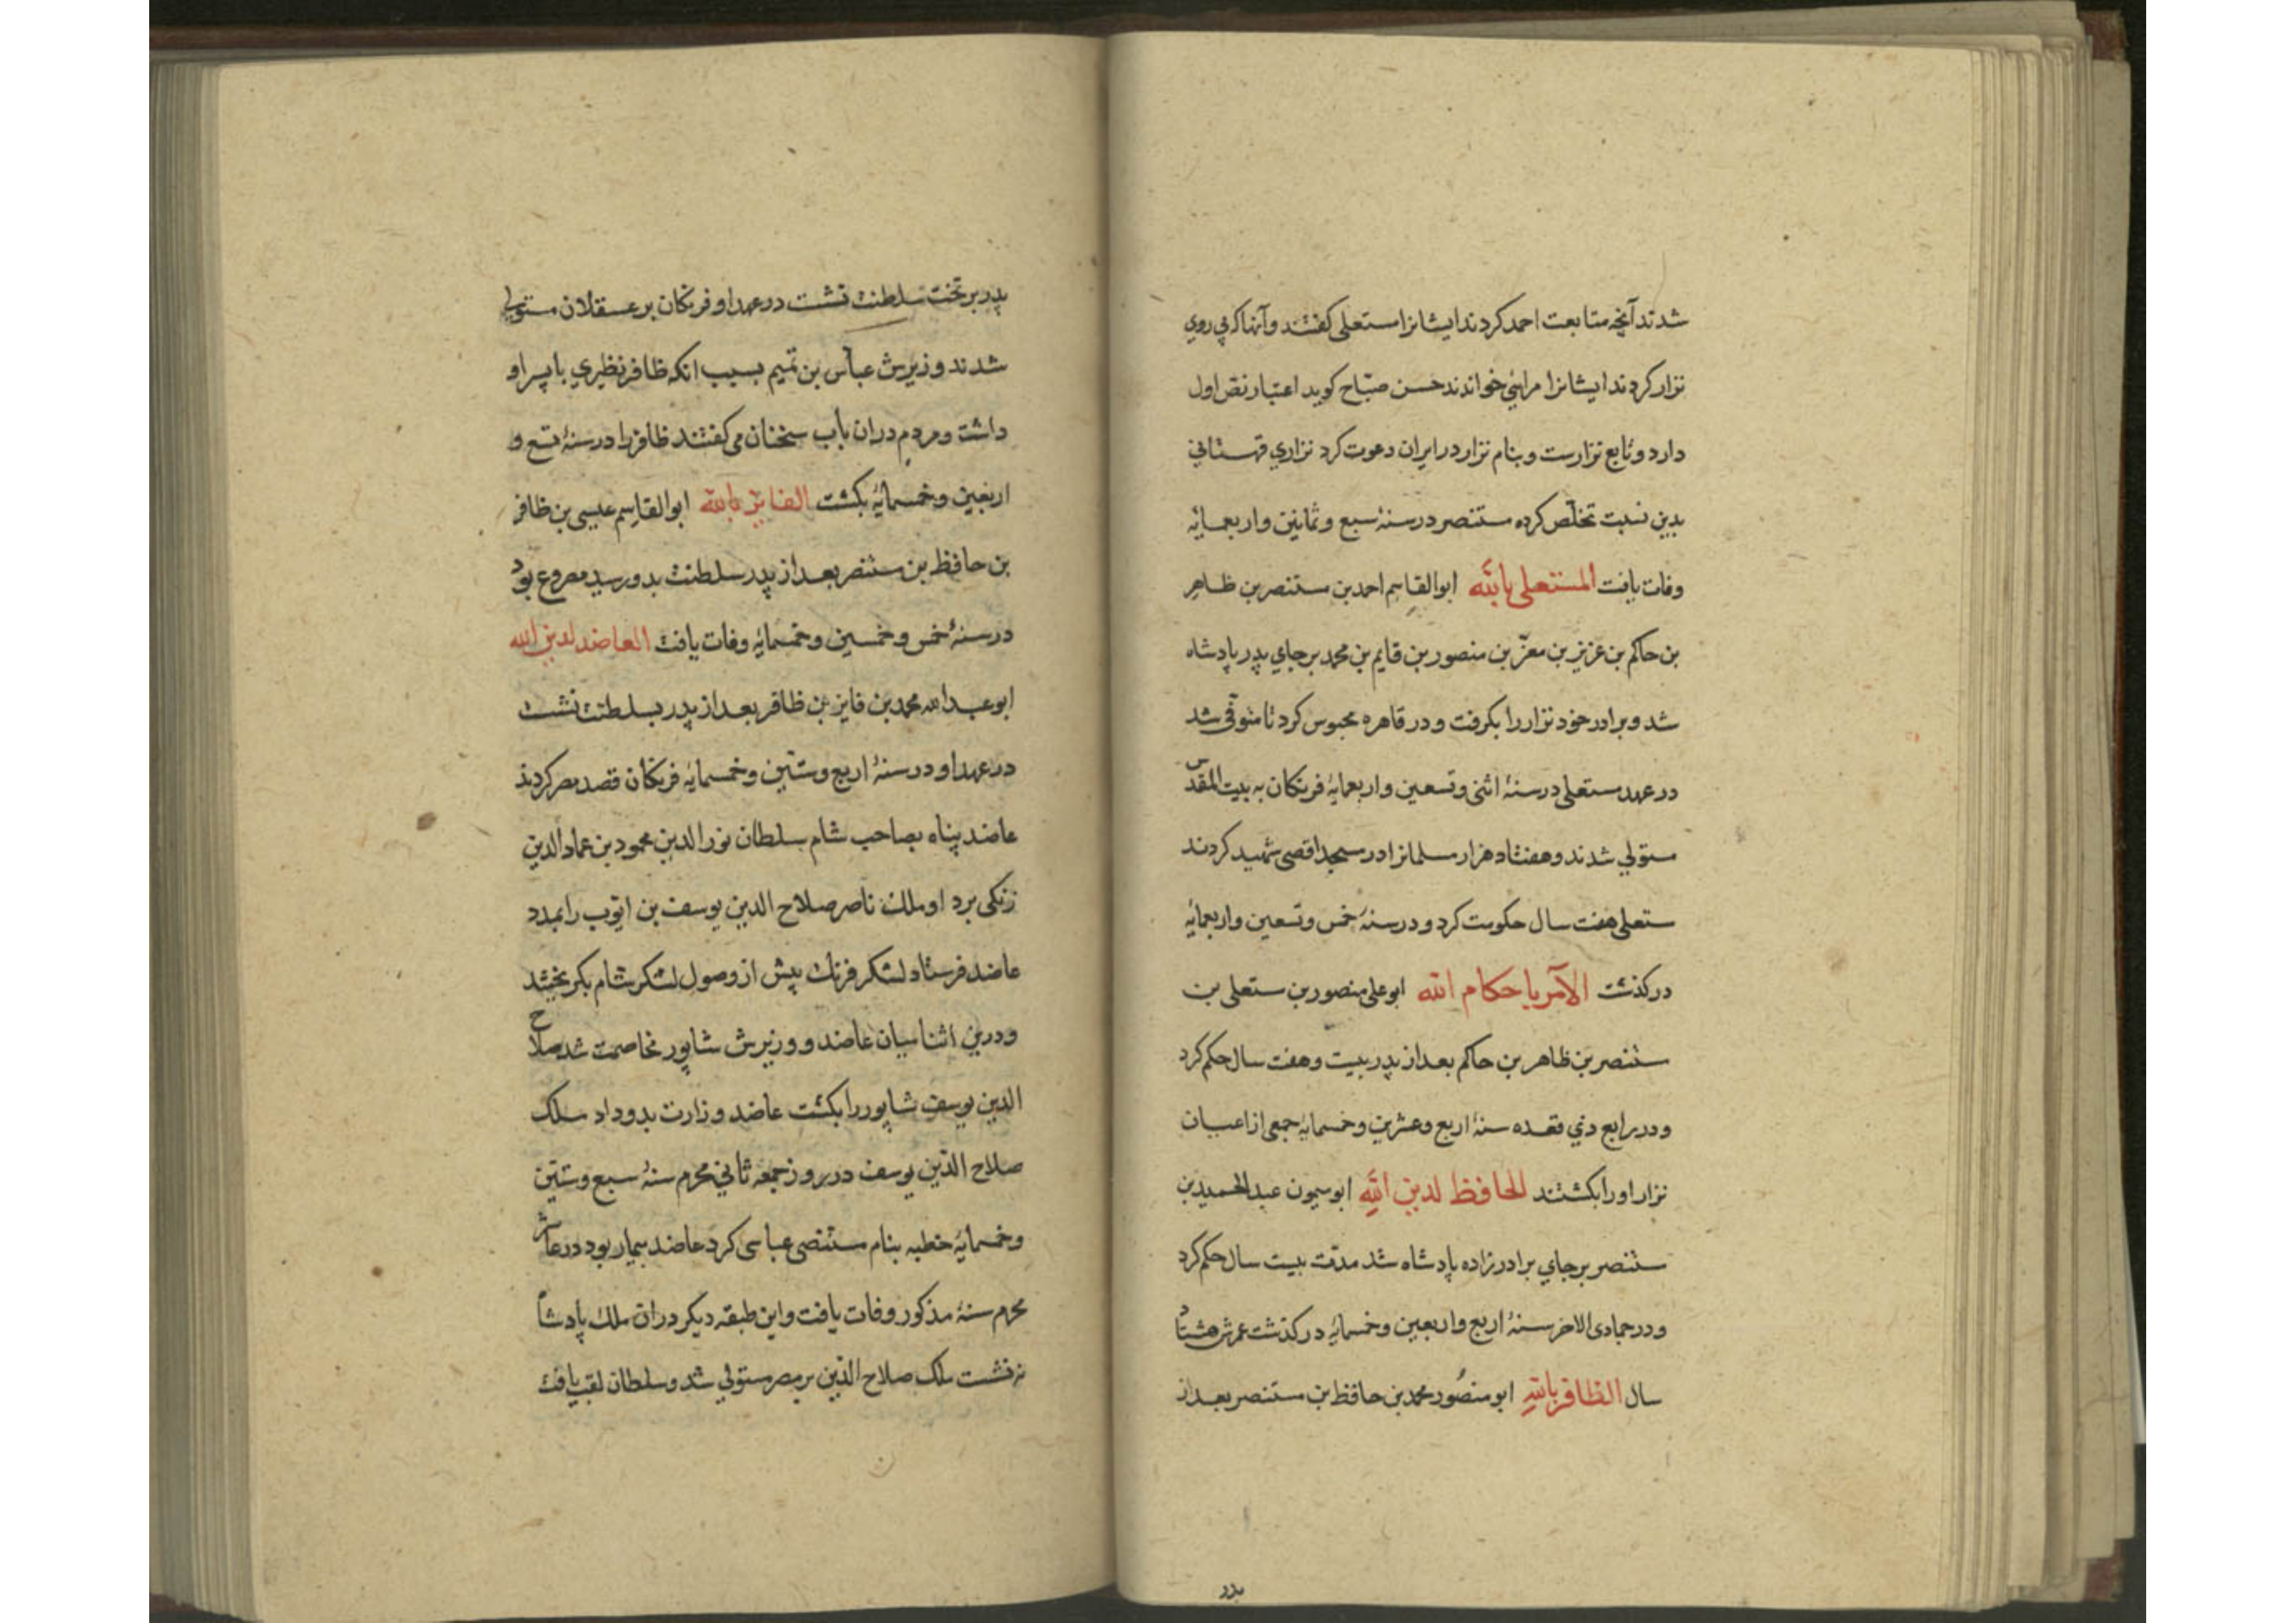 شدند آنچه متابعت احمد کردند ایشانرا مستعلی کفتند و آنها که پی روی
نزار کردند ایشانرا خواندند حسن صبّاح کوید اعتبار نصّ اول
دارد و تابع نزارست و بنام نزار در ایران دعوت کرد نزاری قهستانی
بدین نسبت تخلّص کرده مستنصر در سنهٔ سبع و ثمانین و اربعمایه
وفات یافت المستعلی بالله ابوالقاسم احمد بن مستنصر بن ظاهر
بن حاکم بن عزیز بن معزّ بن منصور بن قایم بن محمد بر جای پدر پادشاه
شد و برادر خود نزار را بکرفت و در قاهره محبوس کرد تا متوفّی شد
در عهد مستعلی در سنهٔ اثنی و تسعین و اربعمایهٔ فرنکان به بیت المقدس
مستولی شدند و هفتاد هزار مسلمانرا در مسجد اقصی شهید کردند
مستعلی هفت سال حکومت کرد و در سنهٔ خمس و تسعین و اربعمایهٔ
درکذشت الآمر باحکام الله ابو علی منصور بن مستعلی بن
مستنصر بن ظاهر بن حاکم بعد از پدر بیست و هفت سال حکم کرد
و در رابع ذی قعده سنهٔ اربع و عشرین و خمسمایهٔ جمعی از اعیان
نزار او را بکشتند الحافظ لدین الله ابو میمون عبد الحمید بن
مستنصر بر جای برادرزاده پادشاه شد مدّت بیست سال حکم کرد
و در جمادی الاخر سنهٔ اربع و اربعین و خمسمایهٔ درکذشت عمرش هشتاد
سال الظافر بالله ابو منصور محمد بن حافظ بن مستنصر بعد از
پدر
پدر بر تخت سلطنت نشست در عهد او فرنکان بر عسقلان مستولی
شدند و زیرش عباس بن تمیم بسبب انکه ظافر نظری با پسر او
داشت و مردم دران باب سخنان می کفتند ظافر را در سنهٔ تسع و
اربعین و خمسمایهٔ بکشت الفایز بالله ابوالقاسم عیسی بن ظافر
بن حافظ بن مستنصر بعد از پدر سلطنت بدو رسید مصروع بود
در سنهٔ خمس و خمسین و خمسمایهٔ وفات یافت العاضد لدین الله
ابو عبد الله محمد بن فایز بن ظافر بعد از پدر بسلطنت نشست
در عهد او در سنهٔ اربع و ستّین و خمسمایهٔ فرنکان قصد مصر کردند
عاضد پناه بصاحب شام سلطان نور الدین محمود بن عماد الدین
زنکی برد او ملک ناصر صلاح الدین یوسف بن ایّوب را بمدد
عاضد فرستاد لشکر فرنک پیش از وصول لشکر شام بکریختند
و درین اثنا میان عاضد و وزیرش شاپور مخاصمت شد صلاح
الدین یوسف شاپور را بکشت عاضد وزارت بدو داد ملک
صلاح الدّین یوسف در روز جمعه ثانی محرم سنهٔ سبع و ستّین
و خمسمایهٔ خطبه بنام مستضی عباسی کرد عاضد بیمار بود در عاشر
محرم سنهٔ مذکور وفات یافت و این طبقه دیکر دران ملک پادشاه
نه نشست ملک صلاح الدّین بر مصر مستولی شد و سلطان لقب یافت